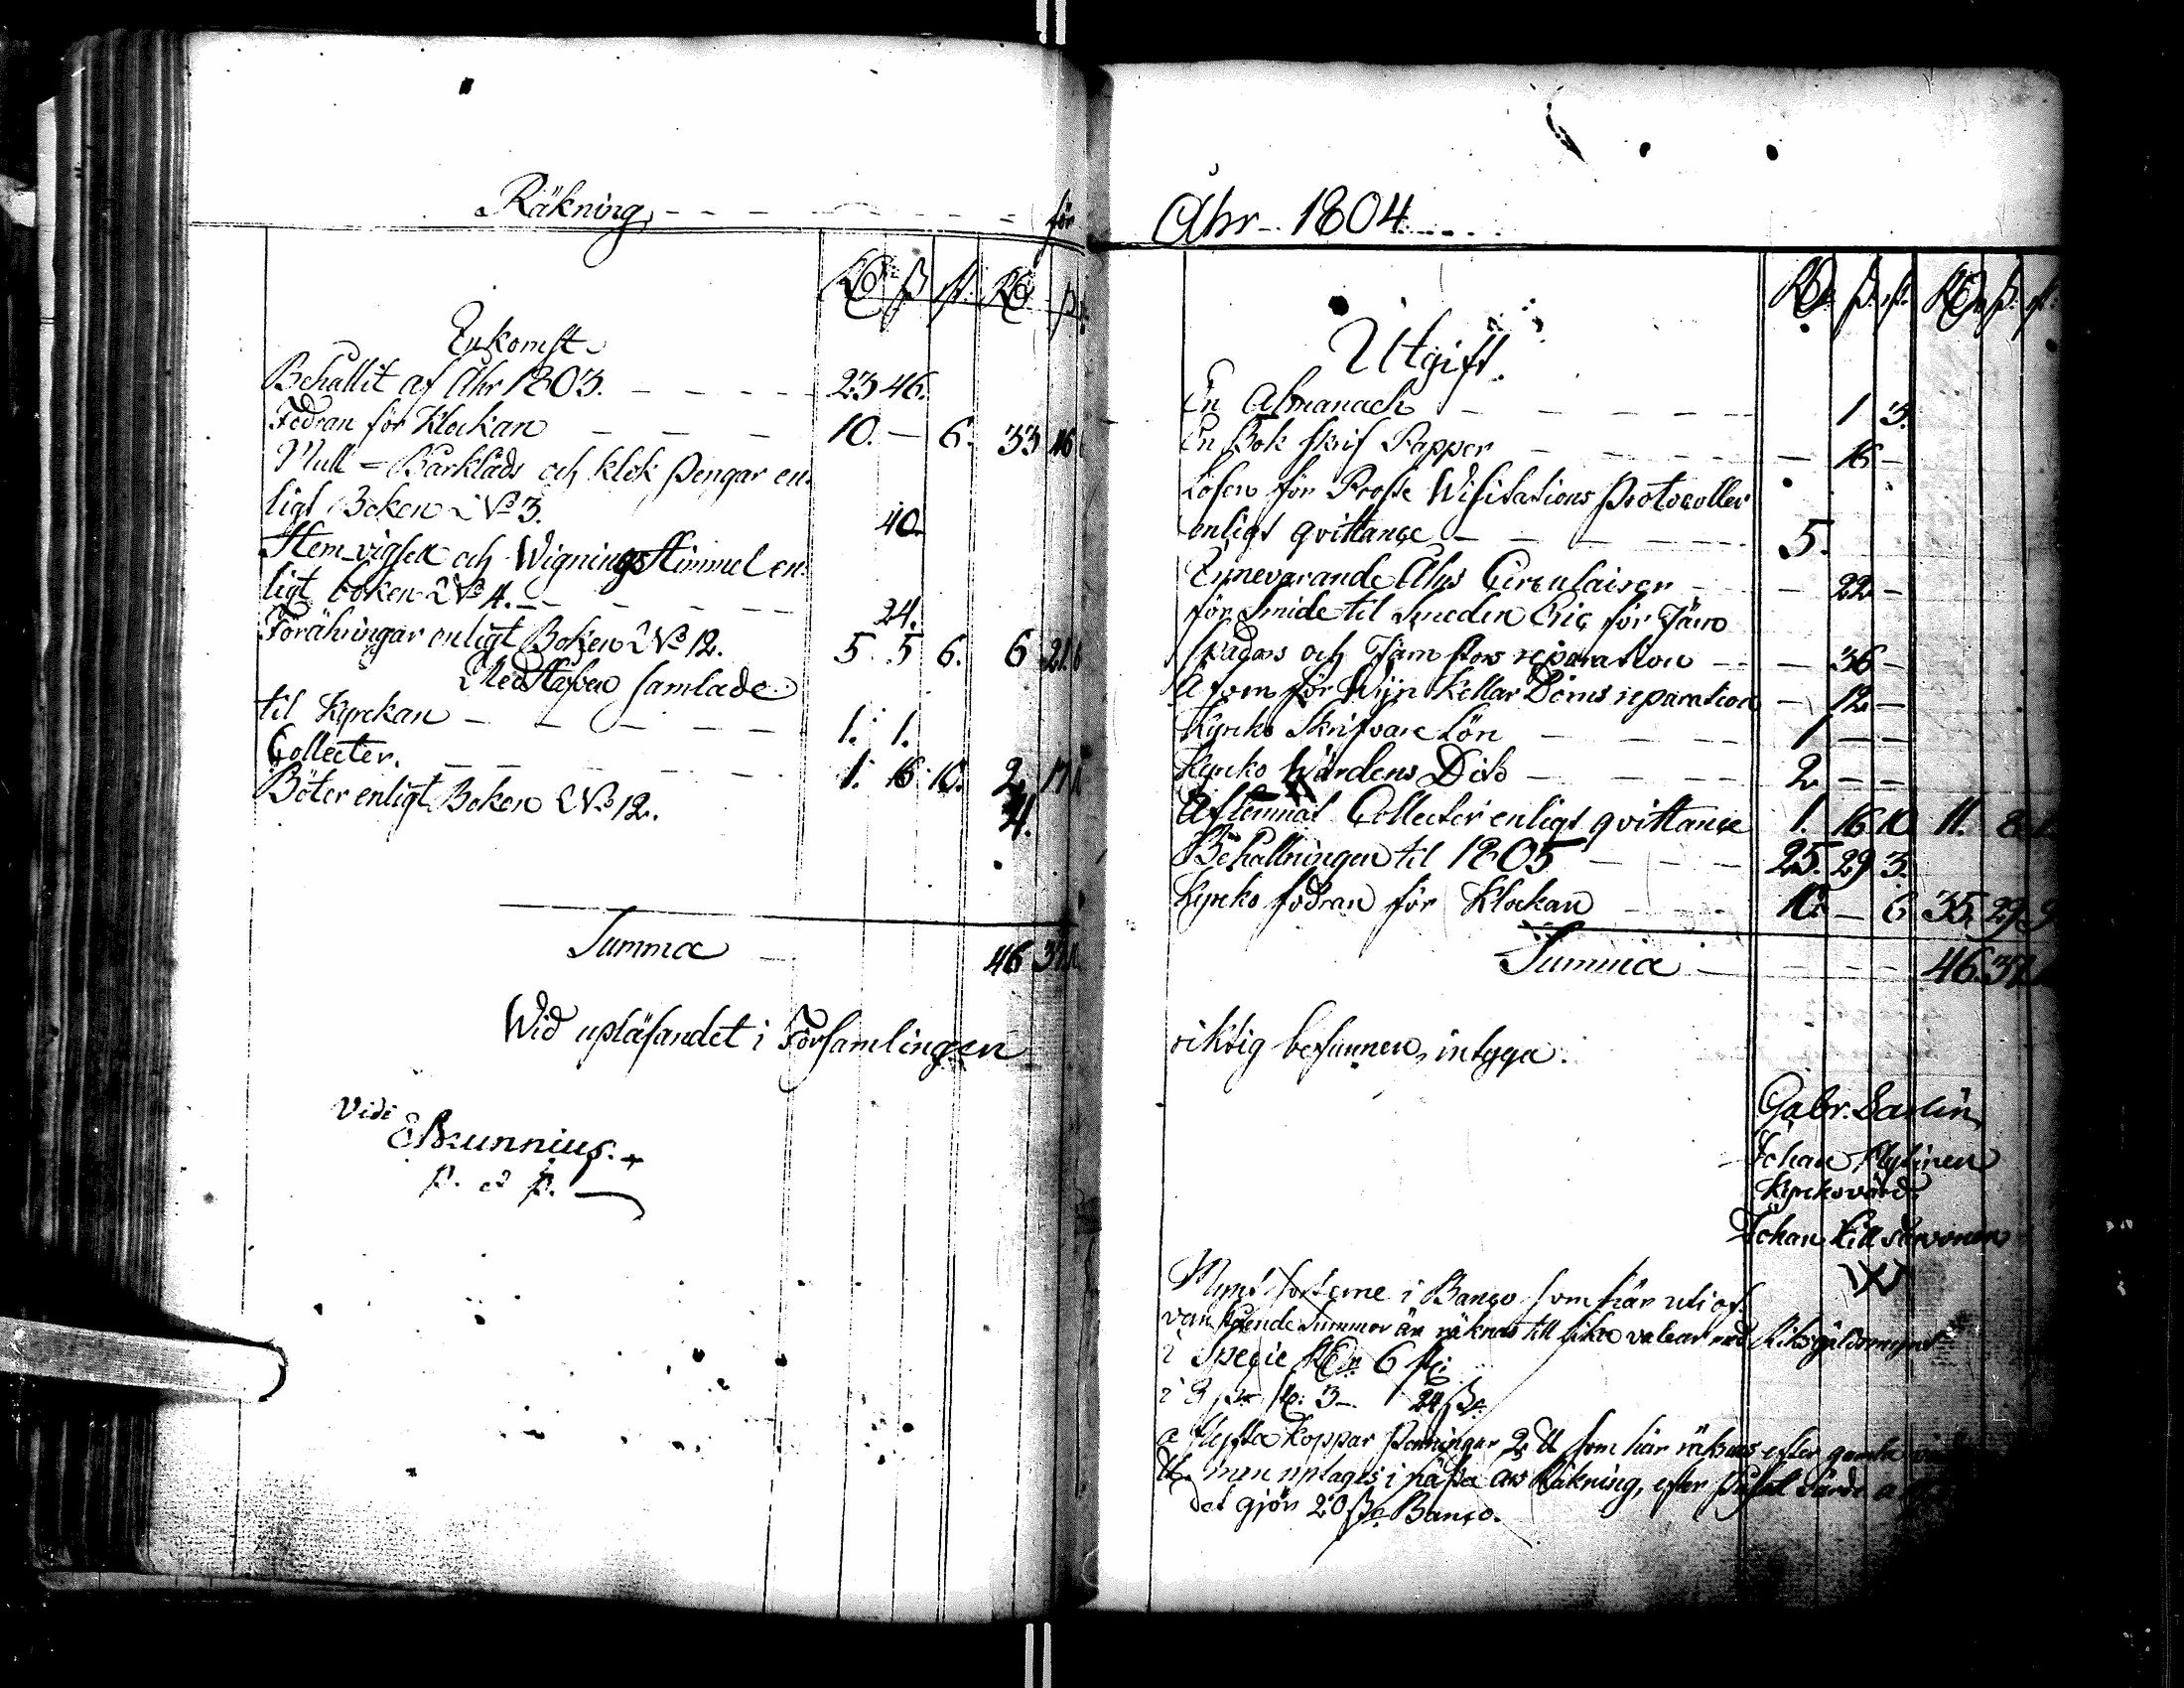 Räkning, - - - - - - - - - för
Rd ß rst. Rd ß.
Inkomst.
Behallit af Åhr 1803. - - - - - 23 46.
Fodran för Klockan - - - 10. - 6. 33 46
Mull = Bårkläds och klok Pengar en-
ligt Boken No 3. 40.
Hem vigsel och Wignings Himmel en-
ligt boken No 4. - - - - - 24.
Forähringar enligt Boken No 12. 5. 5 6. 6 21. 6
Med Håfven samlade
til Kyrckan - - - - - 1. 1.
Collecter. - - - - - 1. 16. 10. 2. 17. 10
Böter enligt Boken No 12. 4.
Summa - 46 37. 10
Wid upläsandet i Församlingen
Vidi
EBrunnius.
P. et P.
Åhr 1804 - - - -
Rd ß. rst. Rd ß. rst.
Utgift.
En Almanach - - - - - 1 3.
En Bok skrif Papper - - - - - 16 -
Lösen för Proste Wisitations Protocollet
enligt qvittance - - - - - 5.
Innevarande Åhrs Circulairer - - 22 -
för Smide til Smeden Eric för Järn
spadars och Järn stors reparation - - - 36 -
A som för Wijn Kellar Dörns reparation - 12 -
Kyrcko Skrifvare Lön - - - 1 - -
Kyrcko Wärdens Dito - - - 2 - -
Aflemnat Collecter enligt qvittance 1. 16 10 11. 8.
Behallningen til 1805 - - - 25. 29 3.
Kyrcko fodran för Klockan - - - 10. - 6 35. 29. 9
Summa - - - - - 46. 37.
riktig befunnen, intyga.
Gabr. Sarlin
Johan
Kyrckovärd
Johan
Mynt sorterne i Banco som här uti of-
van stående Summor är räknas till lika valeur med Riksgäldsmynt
i Specie Rd 6 st:
i 3 st: 3 - 24 ß
a Slefta Koppar Penningar 2 som här räknas efter gamla
men uptages i nästa års Räkning, efter
det gjör 20 ß Banco.